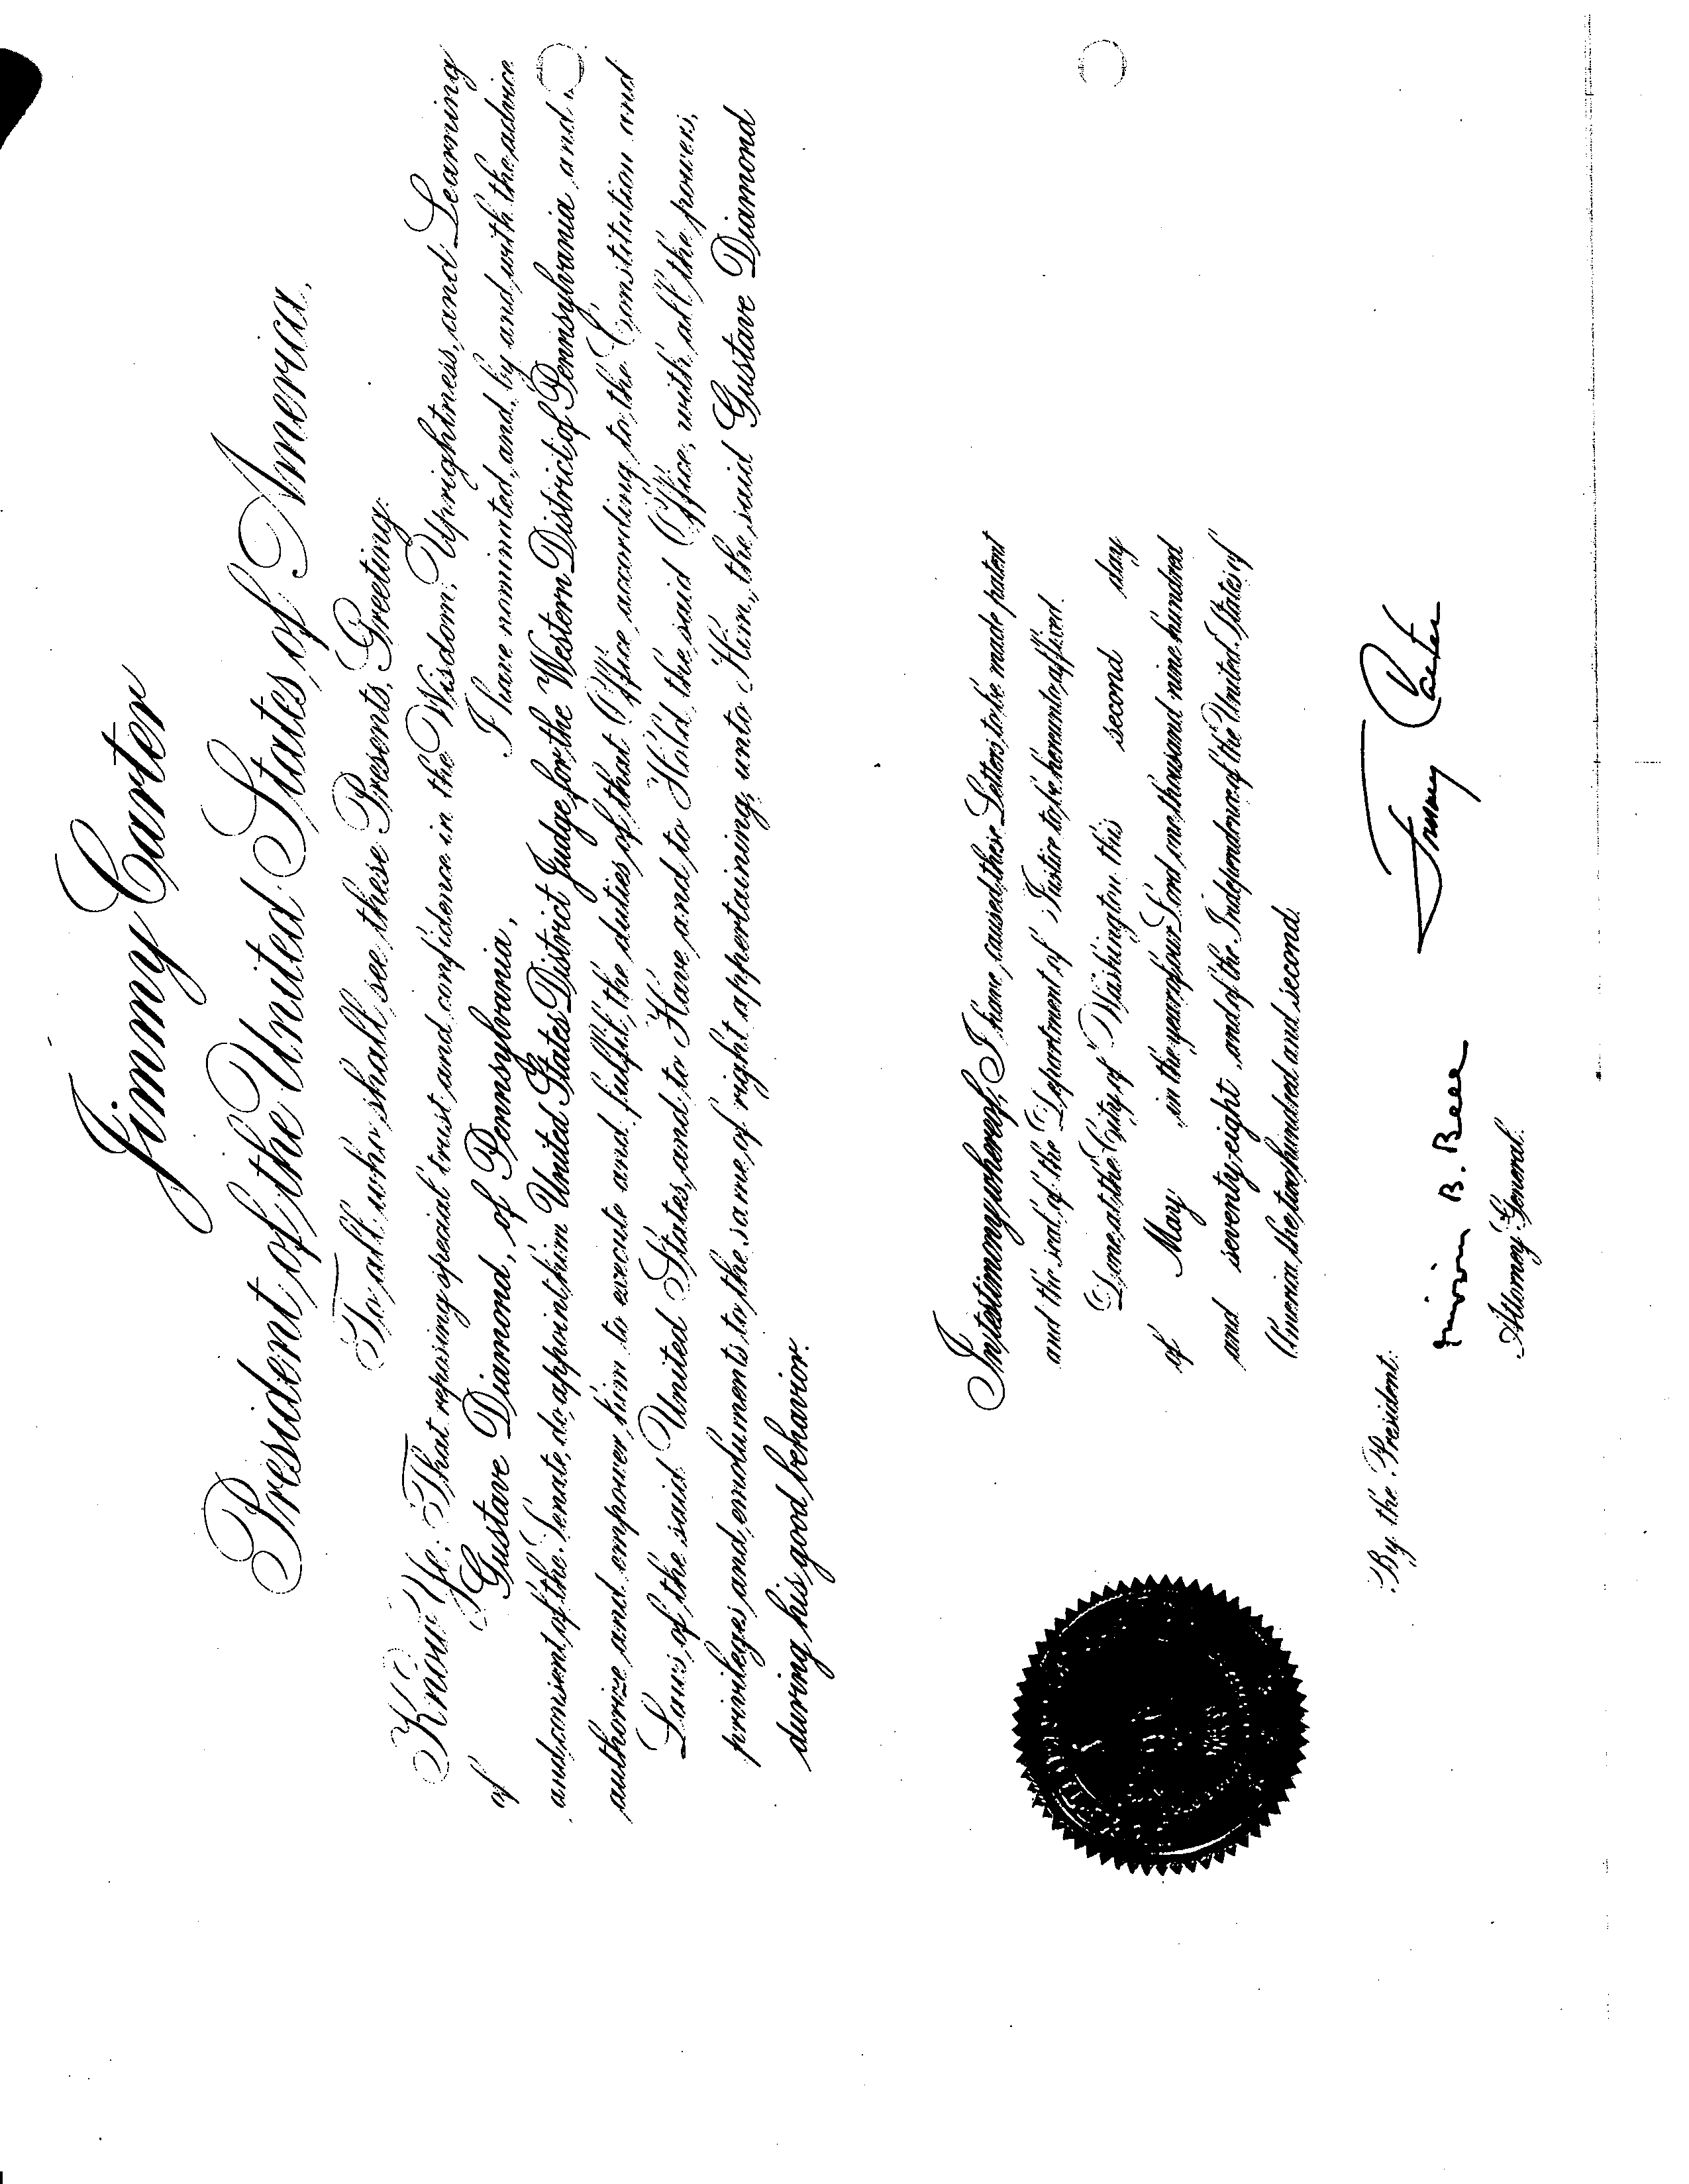 Jimmy Carter
President of the United States of America,
To all who shall see these Presents, Greeting:
Know Ye: That reposing special trust and confidence in the Wisdom, Uprightness, and Learning
of Gustave Diamond, of Pennsylvania, I have nominated, and, by and with the advice
and consent of the Senate, do appoint him United States District Judge for the Western District of Pennsylvania and
authorize and empower him to execute and fulfil the duties of that Office according to the Constitution and
Laws of the said United States, and to Have and to Hold the said Office, with all the powers,
privileges and emoluments to the same of right appertaining, unto Him, the said Gustave Diamond
during his good behavior.
In testimony whereof, I have caused these Letters to be made patent
and the seal of the Department of Justice to be hereunto affixed.
Done at the City of Washington this second day
of May in the year of our Lord one thousand nine hundred
and seventy-eight and of the Independence of the United States of
America the two hundred and second.
By the President:
Jimmy Carter
Griffin B. Bell
Attorney General.